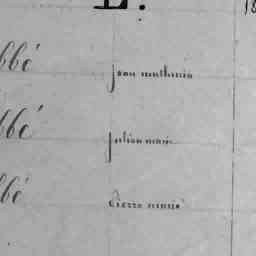 L.
bbé jean mathurin
bbé julien marie
bbé Pierre marie